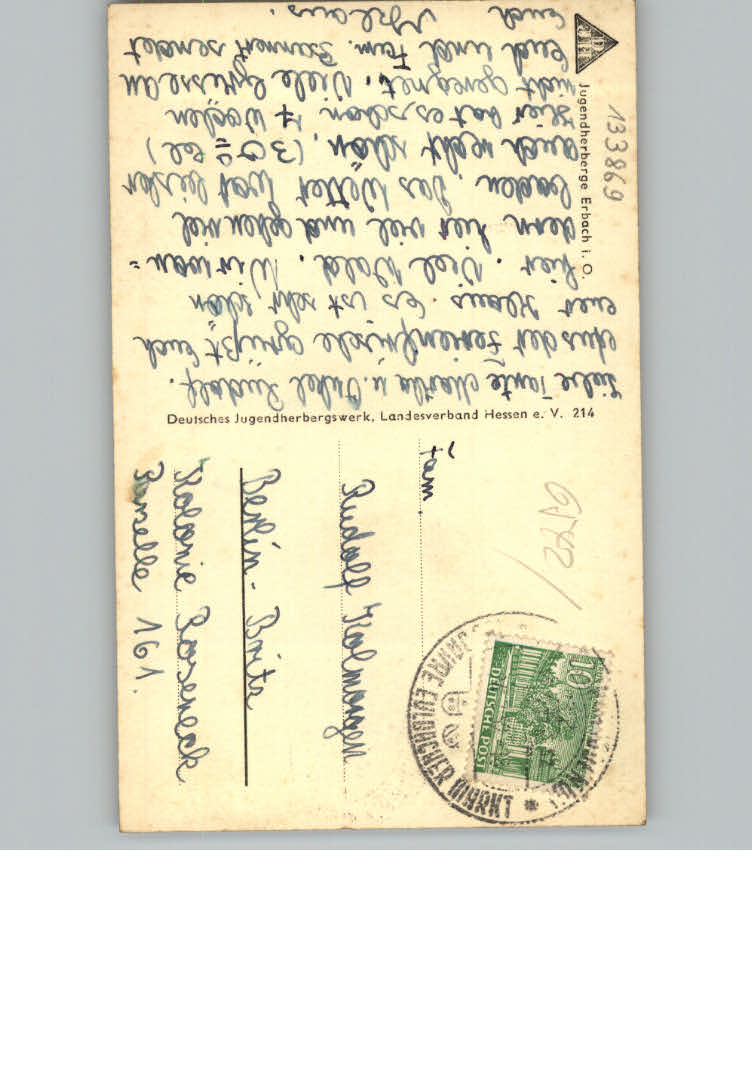 Jugendherberge Erbach i. O.
133869
Liebe Tante Martha u. Onkel Rudolf.
Aus der Ferienfrische grüßt Euch
euer Klaus. Es ist sehr schön
hier. Viel Wald. Wir wan=
dern hier viel und gehen viel
baden. Das Wetter ist bisher
auch recht schön.
Hier hat es schon 7 Wochen
nicht geregnet. Viele Grüsse an
Euch und Fam. Bannert sendet
Euch
Klaus.
Deutsches Jugendherbergswerk, Landesverband Hessen e. V. 214
Fam.
Rudolf Kolmorgen
Berlin - Britz
Kolonie Roseneck
Parzelle 161.
10
DEUTSCHE POST
EULBACHER MARKT